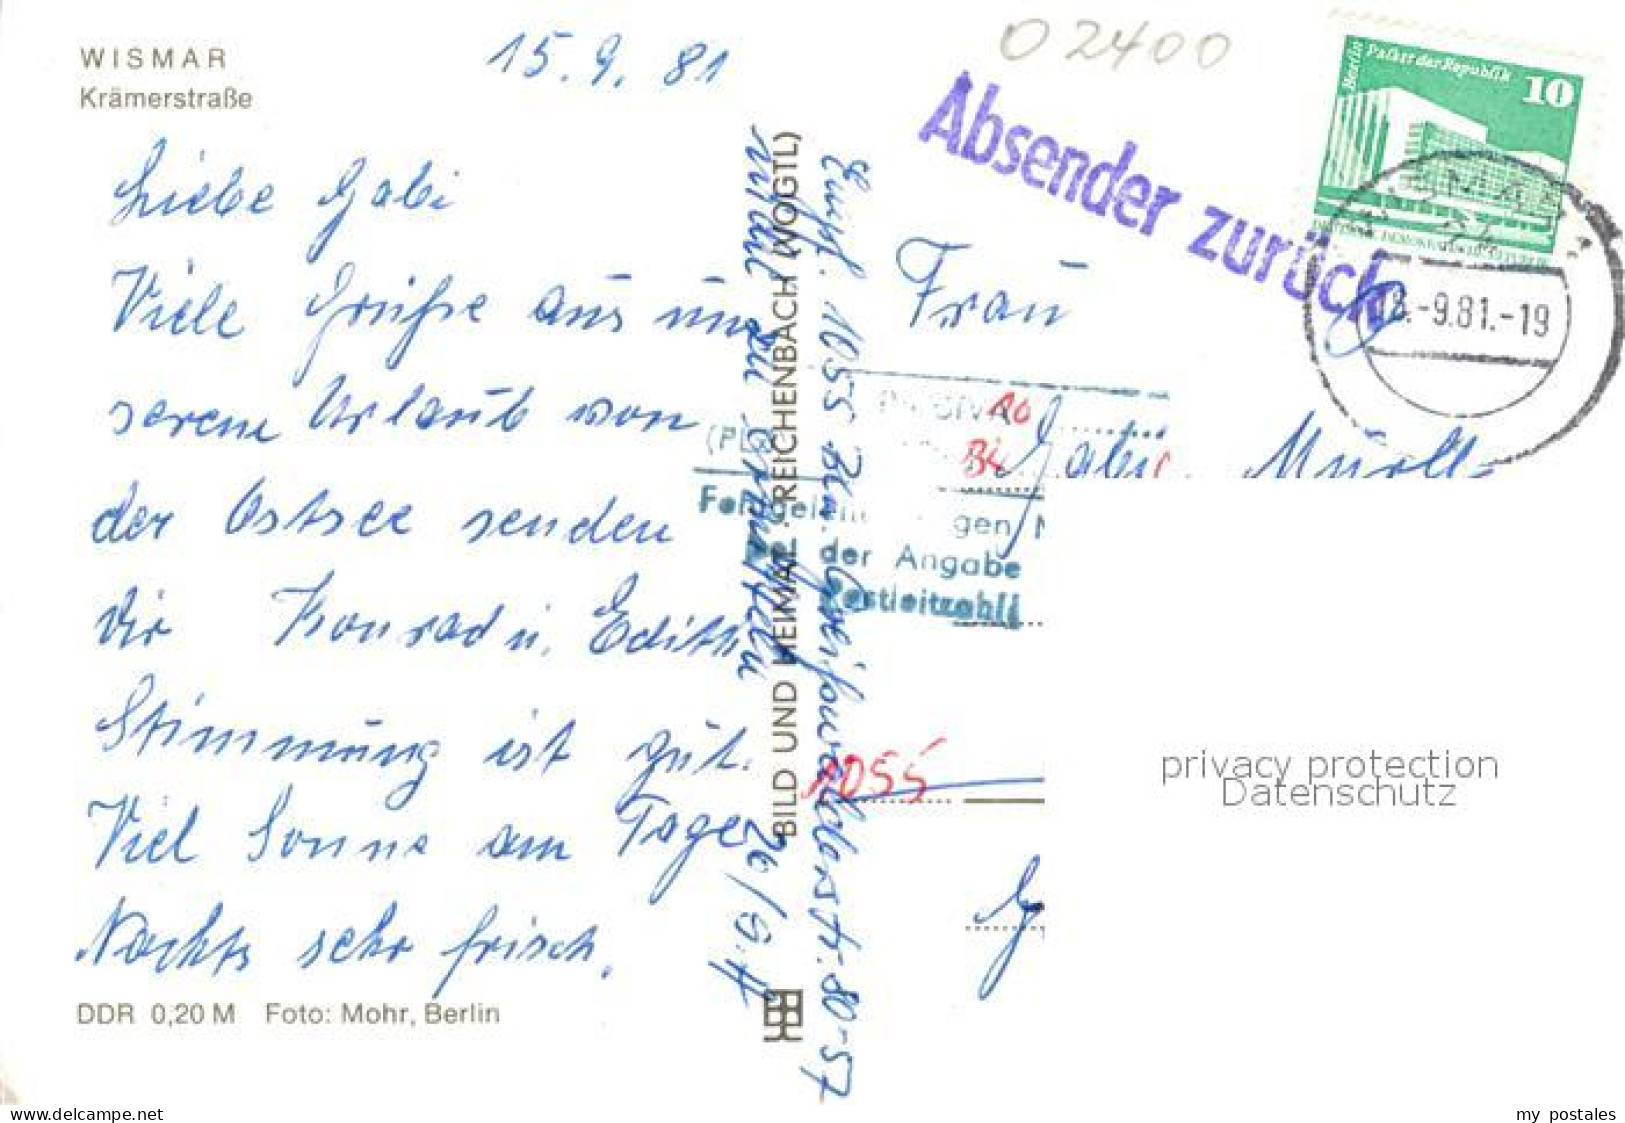 WISMAR
Krämerstraße
15.9.81
Liebe Gabi
Viele Grüße aus un
serem Urlaub von
der Ostsee senden
dir Konrad u. Edith
Stimmung ist gut.
Viel Sonne am Tage
Nachts sehr frisch.
DDR 0,20 M Foto: Mohr, Berlin
BILD UND HEIMAT REICHENBACH (VOGTL)
Empf. 1055 Bln. Greifswalderstr. 80-57
02400
Absender zurück
Berlin Palast der Republik
10
-9.81.-19
Frau
Gabi
gen
der Angabe
Postleitzahl!
1055
privacy protection
Datenschutz
www.delcampe.net
my_postales